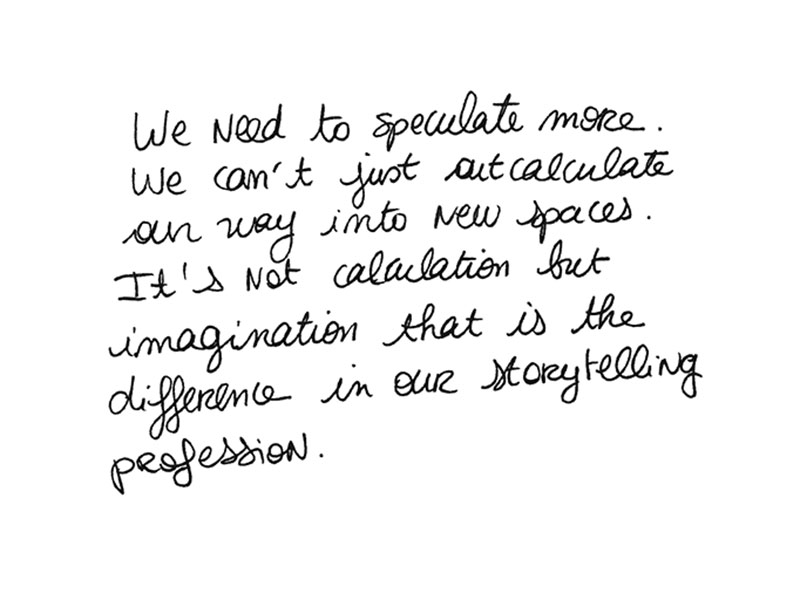 We need to speculate more.
We can't just outcalculate
our way into new spaces.
It's not calculation but
imagination that is the
difference in our storytelling
profession.